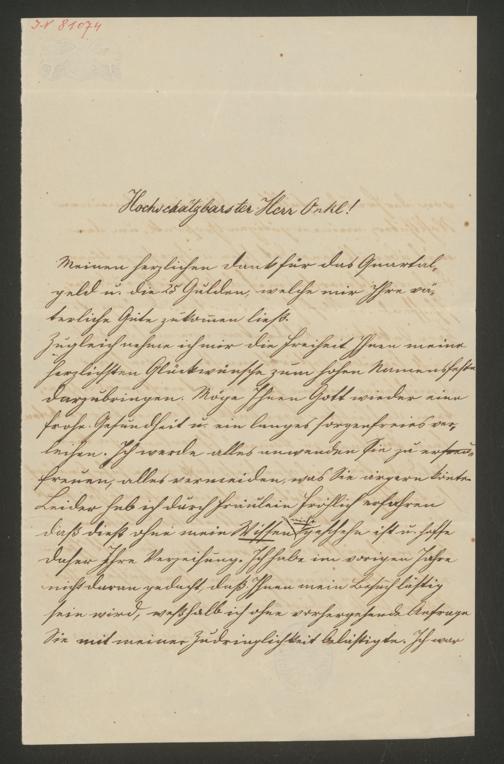 I.N 81074
Hochschätzbarster Herr Onkl!
Meinen herzlichen Dank für das Quartal-
geld u. die 25 Gulden, welche mir Ihre vä-
terliche Güte zukom̄en ließ.
Zugleich nehme ich mir die Freiheit Ihnen meine
herzlichsten Glückwünsche zum hohen Namensfeste
darzubringen. Möge Ihnen Gott wieder eine
frohe Gesundheit u. ein langes sorgenfreies ver-
leihen. Ich werde alles anwenden Sie zu
freuen, alles vermeiden, was Sie ärgern könte.
Leider hab ich durch Fräulein Fröhlich erfahren
daß dieß ohne mein Wissen geschehn ist u. hoffe
daher Ihre Verzeihung. Ich habe im vorigen Jahre
nicht daran gedacht, daß Ihnen mein Besuch lästig
sein wird, weßhalb ich ohne vorhergehende Anfrage
Sie mit meiner Zudringlichkeit belästigte. Ich war